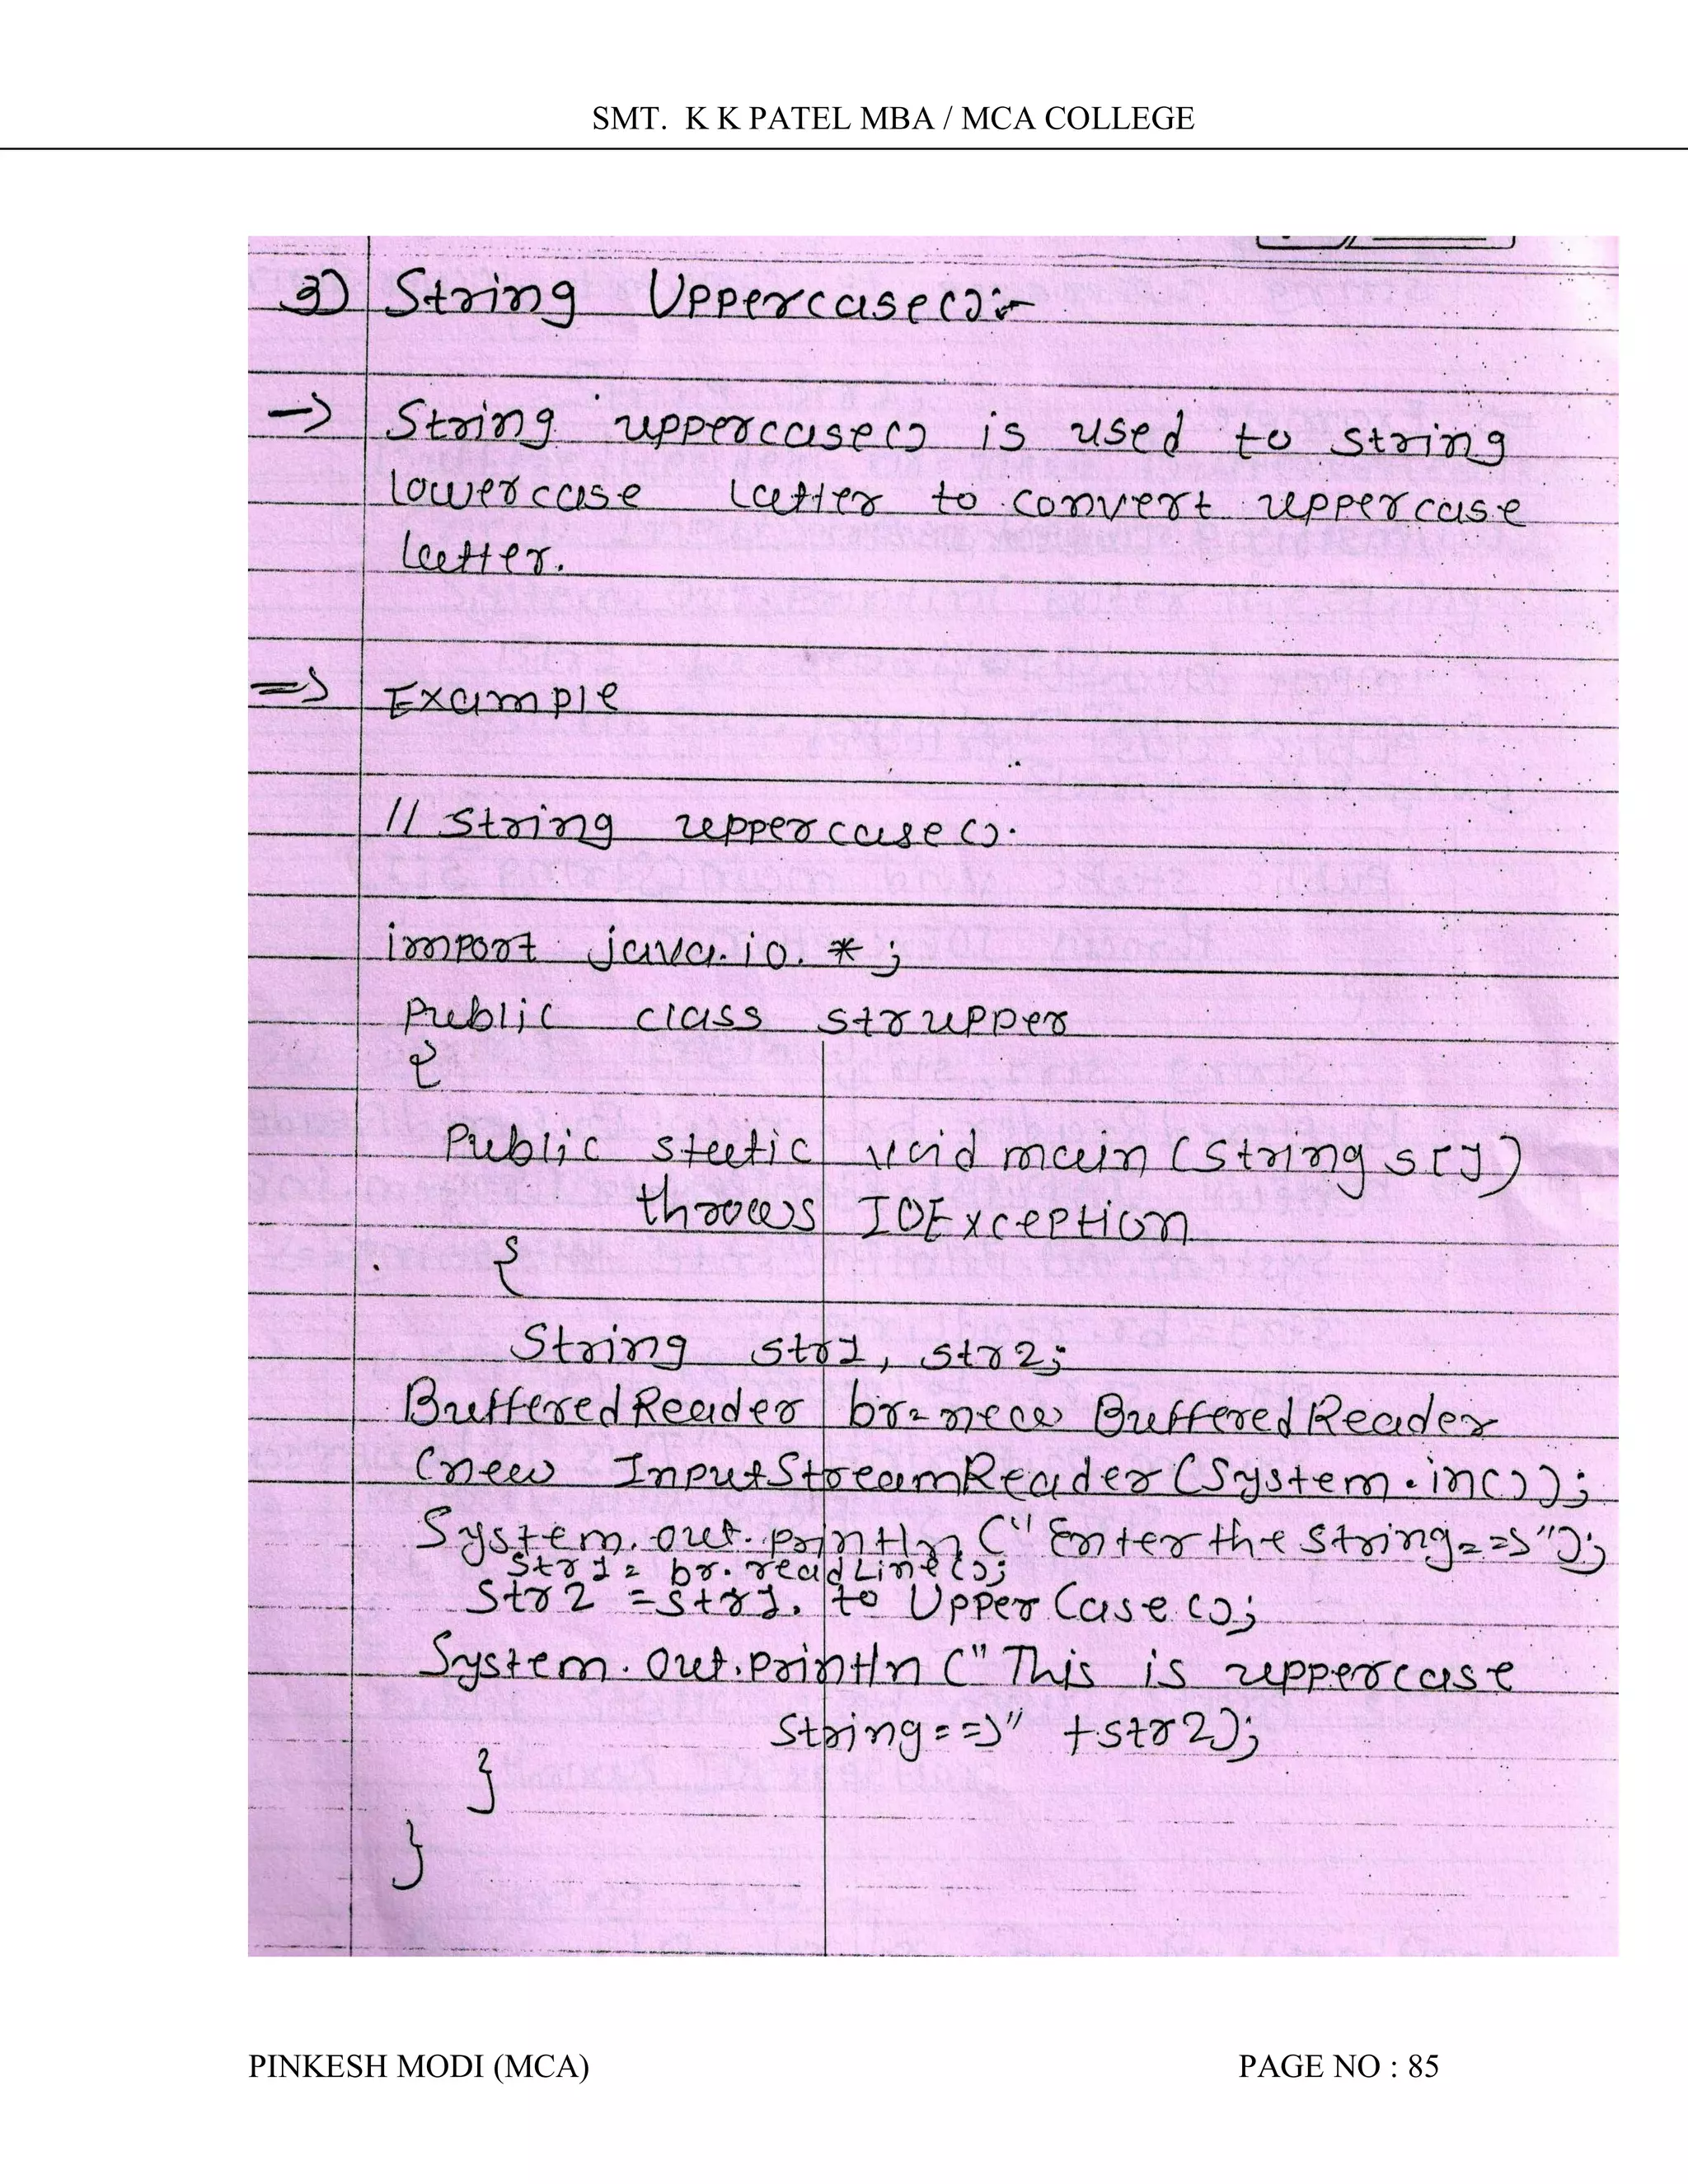 SMT. K K PATEL MBA / MCA COLLEGE
3) String Uppercase():-
-> String uppercase() is used to string
lowercase latter to convert uppercase
letter.
=> Example
// string uppercase().
import java.io.*;
Public class strupper
{
Public static void main (String s[])
throws IOException
{
String str1, str2;
BufferedReader br= new BufferedReader
(new InputStreamReader (System.in());
System.out.println ("Enter the string==>");
str1 = br.readLine();
str2 =str1. to UpperCase ();
System.out.println (" This is uppercase
string==>" +str2);
}
}
PINKESH MODI (MCA) PAGE NO : 85